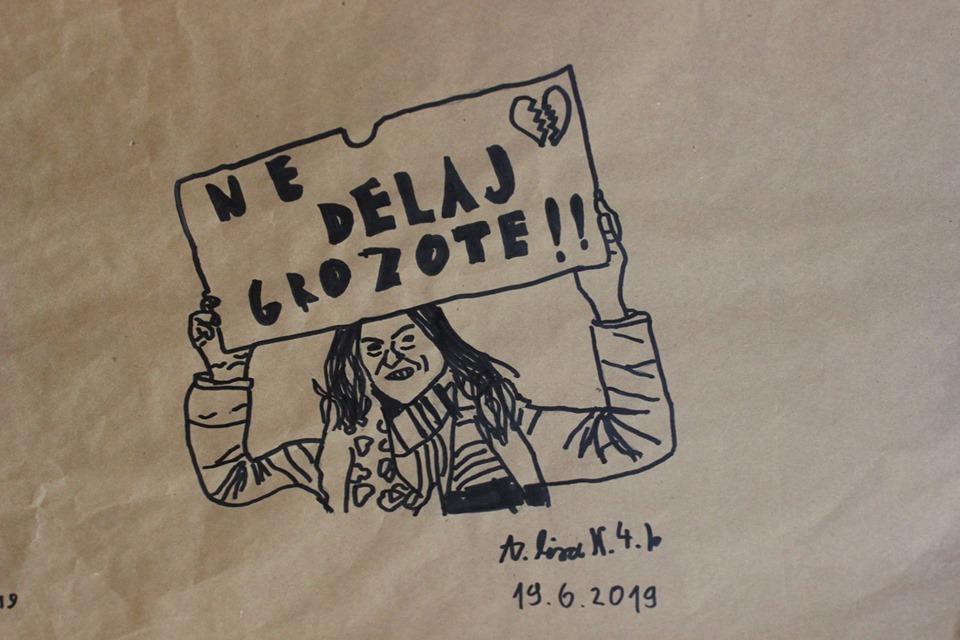 NE
DELAJ
GROZOTE!!
N. 4. b
19.6.2019
19